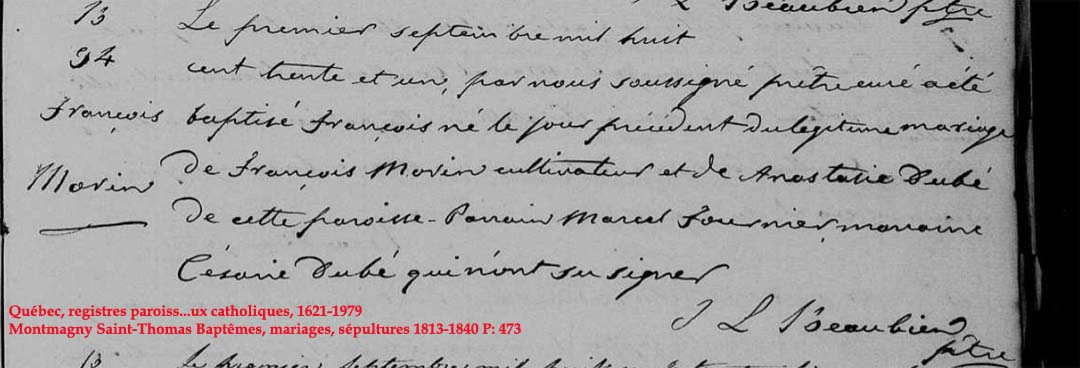 J L Beaubien ptre
B
94
François
Morin
Le premier septembre mil huit
cent trente et un, par nous soussigné prêtre curé a été
baptisé François né le jour précédent du légitime mariage
de François Morin cultivateur et de Anastasie Dubé
de cette paroisse - Parrain Marcel Fournier, marraine
Césarie Dubé qui n'ont su signer
J L Beaubien
ptre
Québec, registres paroiss...ux catholiques, 1621-1979
Montmagny Saint-Thomas Baptêmes, mariages, sépultures 1813-1840 P: 473
B
Le premier septembre mil